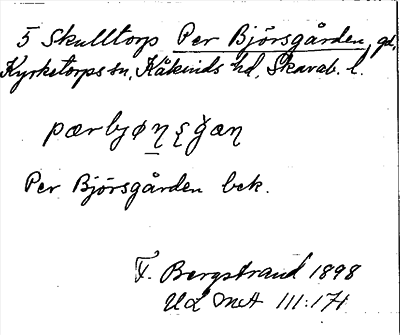 5 Skulltorp Per Björsgården, gd,
Kyrketorps sn, Kåkinds hd, Skarab. l.
pærbyøηęǧæη
Per Björsgården bek.
F. Bergstrand 1898
Ud mA III:171